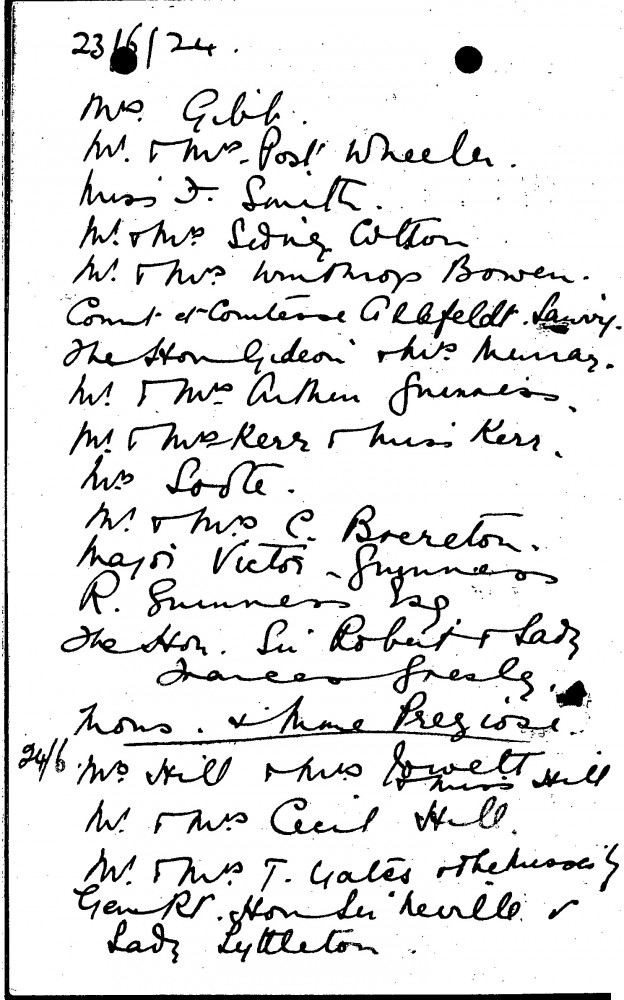 23/6/24.
Mrs. Gibb.
Mr. & Mrs. Post Wheeler.
Miss F. Smith.
Mr. & Mrs Sidney Cotton
Mr. & Mrs Winthrop Bowen.
Count et Comtesse Ahlefeldt.
The Hon Gideon & Mrs Murray.
Mr. & Mrs Arthur Guinness.
Mr. & Mrs Kerr & Miss Kerr.
Mrs Soote.
Mr. & Mrs C. Brereton.
Major Victor Guinness
R. Guinness Esq
The Hon. Sir Robert & Lady
Frances Gresley.
Mons. & Mme Preziosi.
24/6 Mrs Hill & Mrs Jowett
& Miss Hill
Mr. & Mrs Cecil Hill.
Mr. & Mrs T. Yates & the Misses Y
Gen Rt. Hon Sir Neville &
Lady Lyttleton.